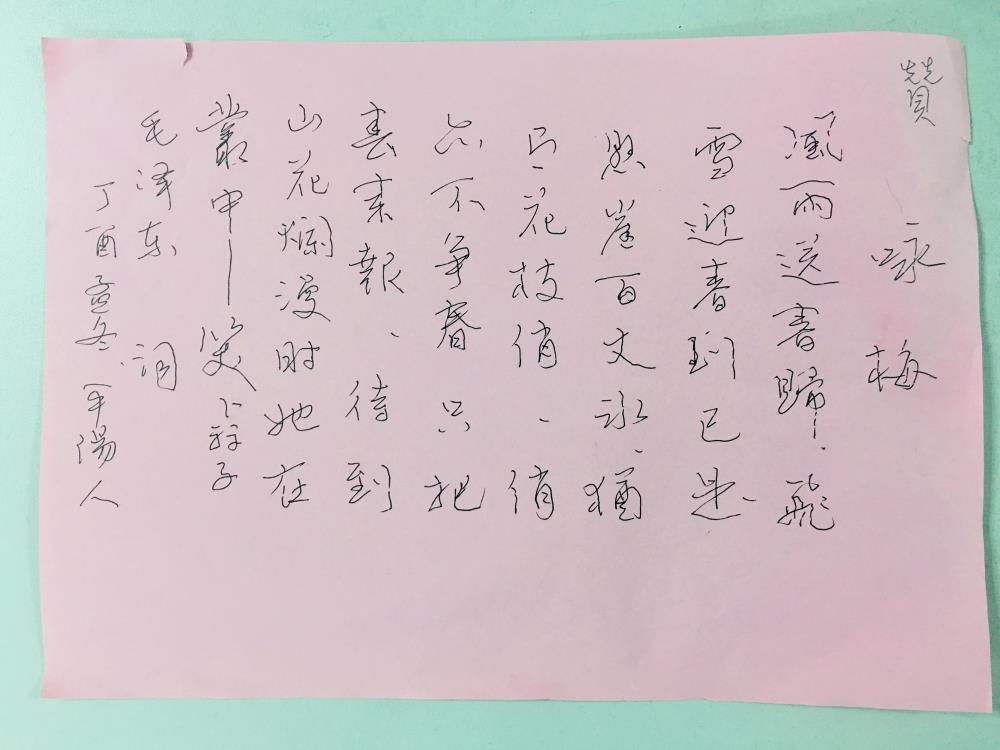 贊
咏梅
風雨送春歸、飛
雪迎春到已是、
悬崖百丈冰、猶
花枝俏、俏
不争春只把
春来報、待到
山花爛漫时她在
叢中一笑 卜算子
毛泽东 词
丁酉孟冬、平陽人